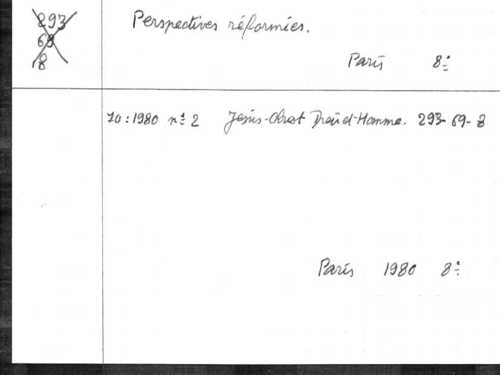 293
69
8
Perspectives réformées.
Paris 8:
1980 nº 2 Jésus-Christ Dieu et Homme. 293-69-8
Paris 1980 8: